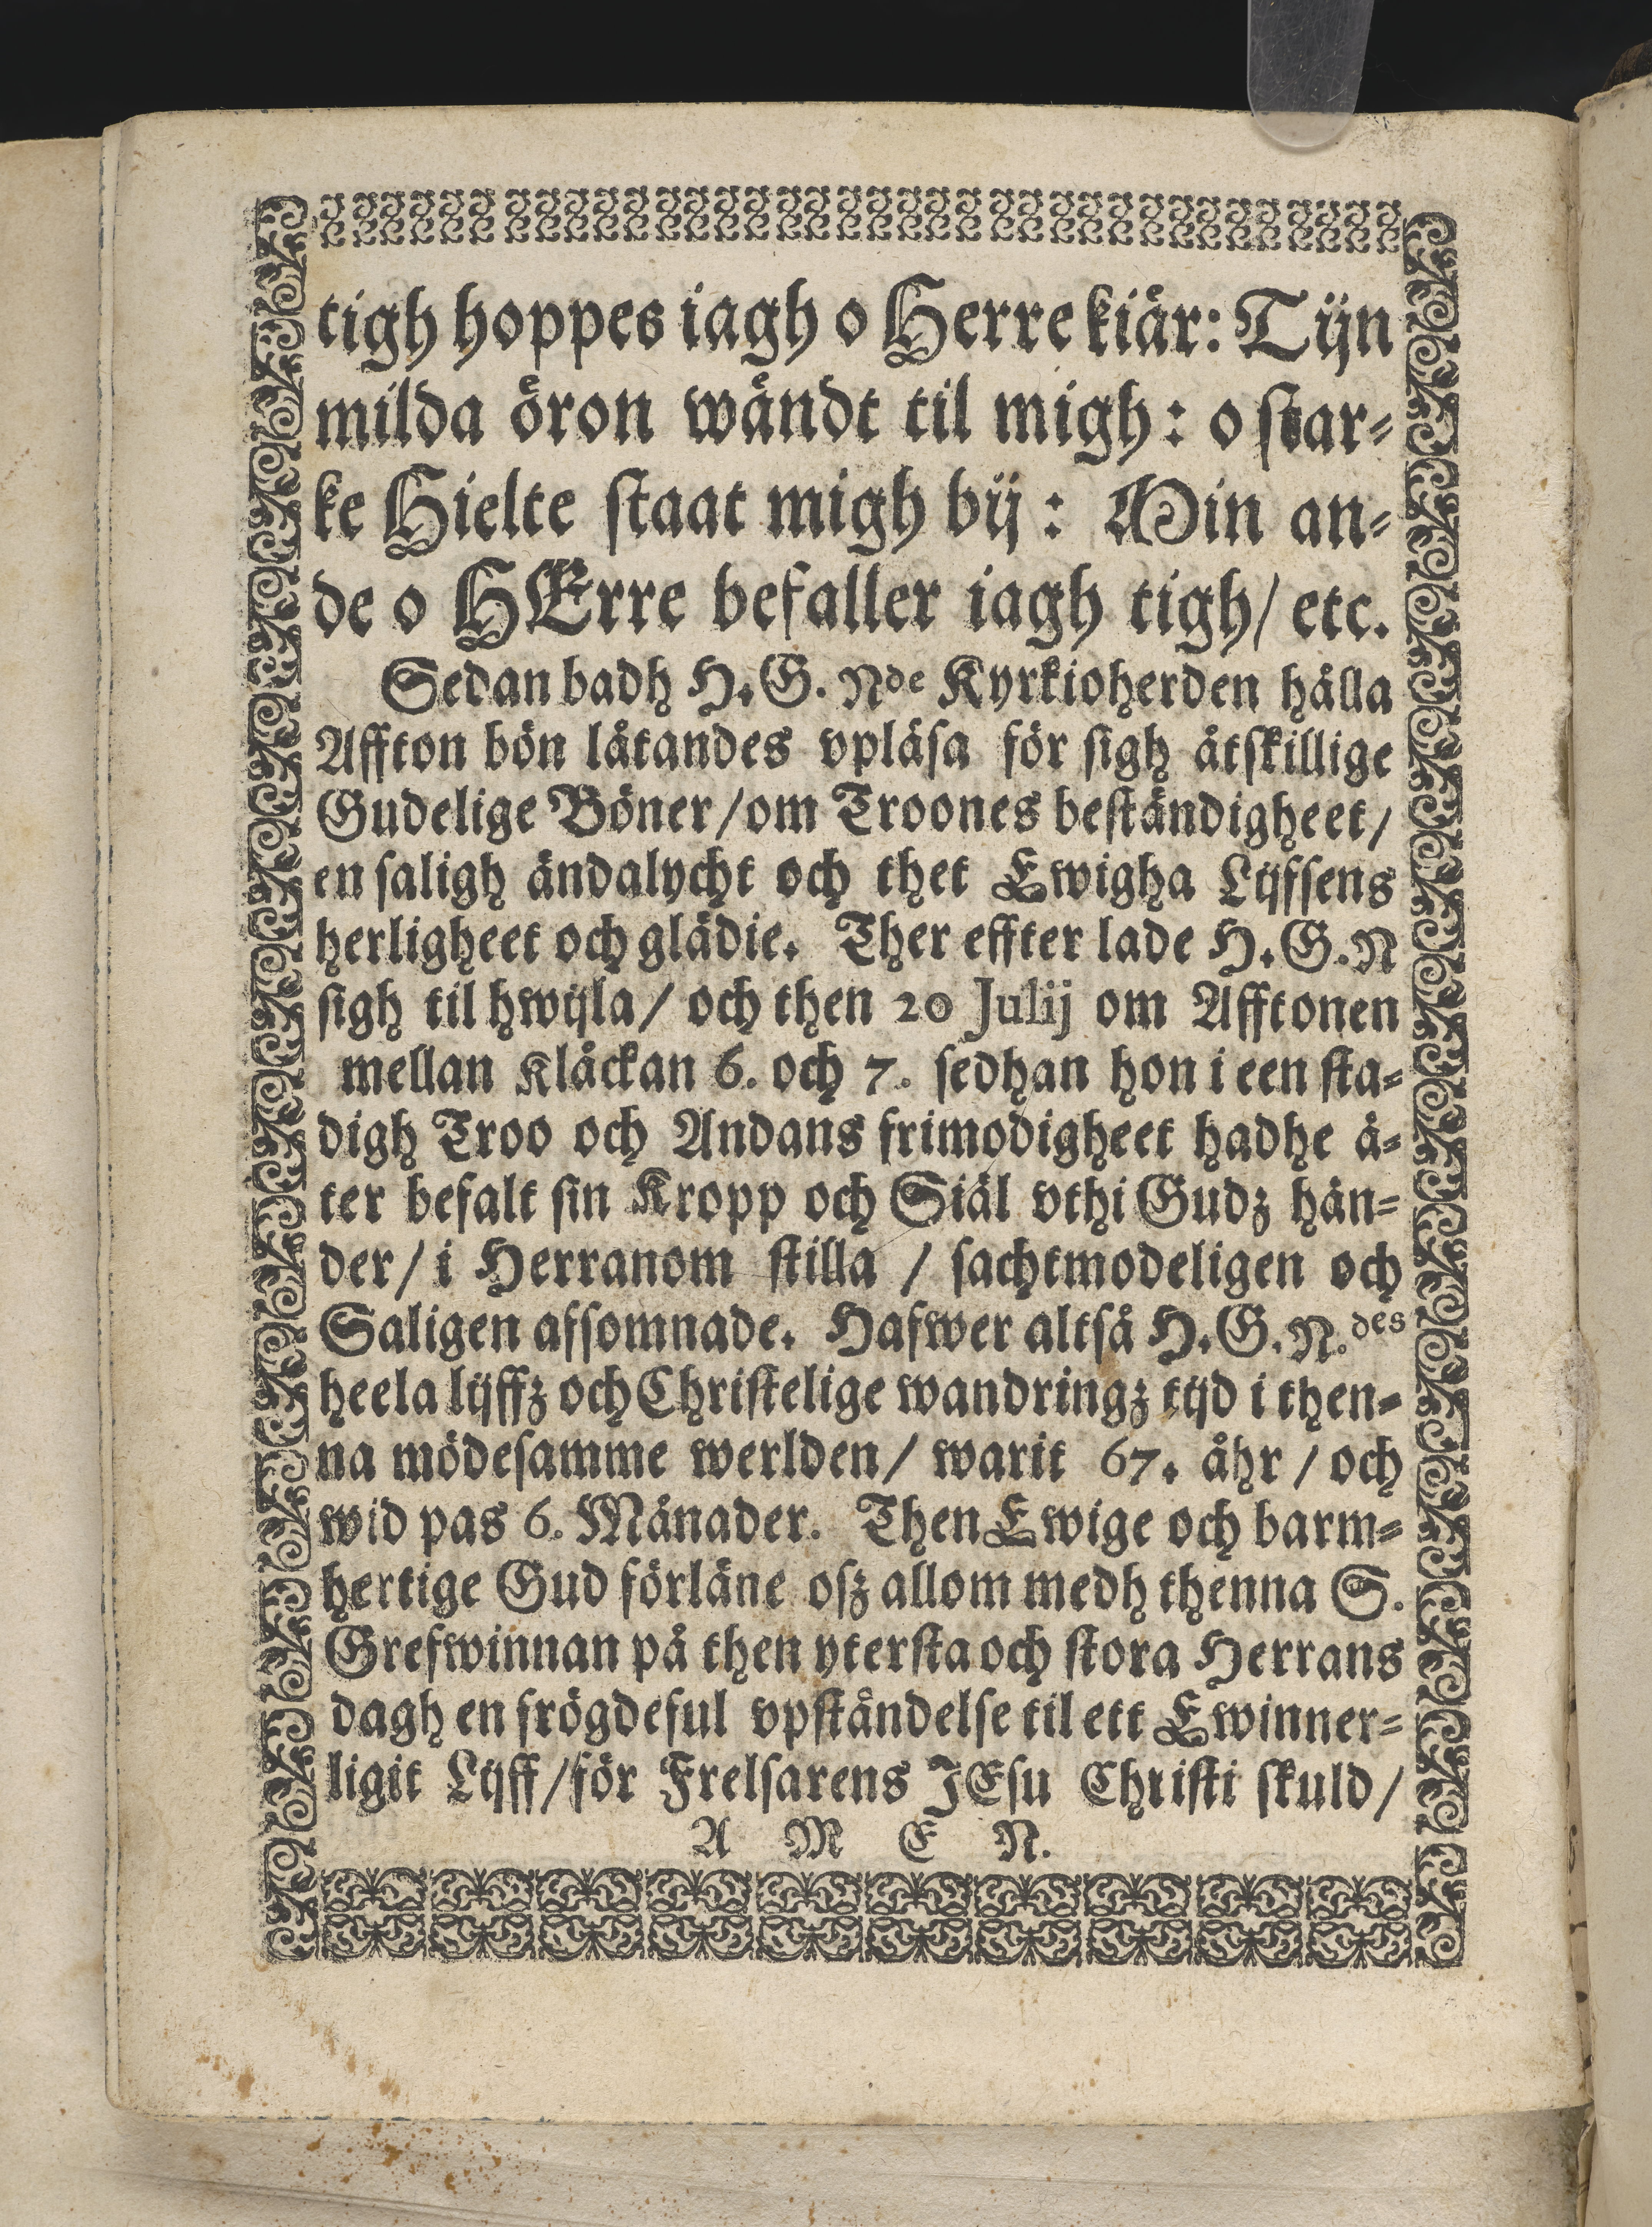 tigh hoppes iagh o Herre kiär: Tijn
milda öron wändt til migh: o star⸗
ke Hielte staat migh bij: Min an⸗
de o HErre befaller iagh tigh/ etc.
Sedan badh H. G. Nde Kyrkioherden hålla
Affton bön låtandes vpläsa för sigh åtskillige
Gudelige Böner/om Troones beständigheet/
en saligh ändalycht och thet Ewigha Lijfsens
herligheet och glädie. Ther effter lade H. G. N
sigh til hwijla/ och then 20 Julij om Afftonen
mellan Klåckan 6. och 7. sedhan hon i een sta⸗
digh Troo och Andans frimodigheet hadhe å⸗
ter befalt sin Kropp och Siäl vthi Gudz hän⸗
der/ i Herranom stilla / sachtmodeligen och
Saligen afsomnade. Hafwer altså H. G. N.des
heela lijffz och Christelige wandringz tijd i then⸗
na mödesamme werlden/ warit 67. åhr / och
wid pas 6. Månader. Then Ewige och barm⸗
hertige Gud förläne osz allom medh thenna S.
Grefwinnan på then yttersta och stora Herrans
dagh en frögdeful vpståndelse til ett Ewinner⸗
ligit Lijff/för Frelsarens JEsu Christi skuld/
A M E N.